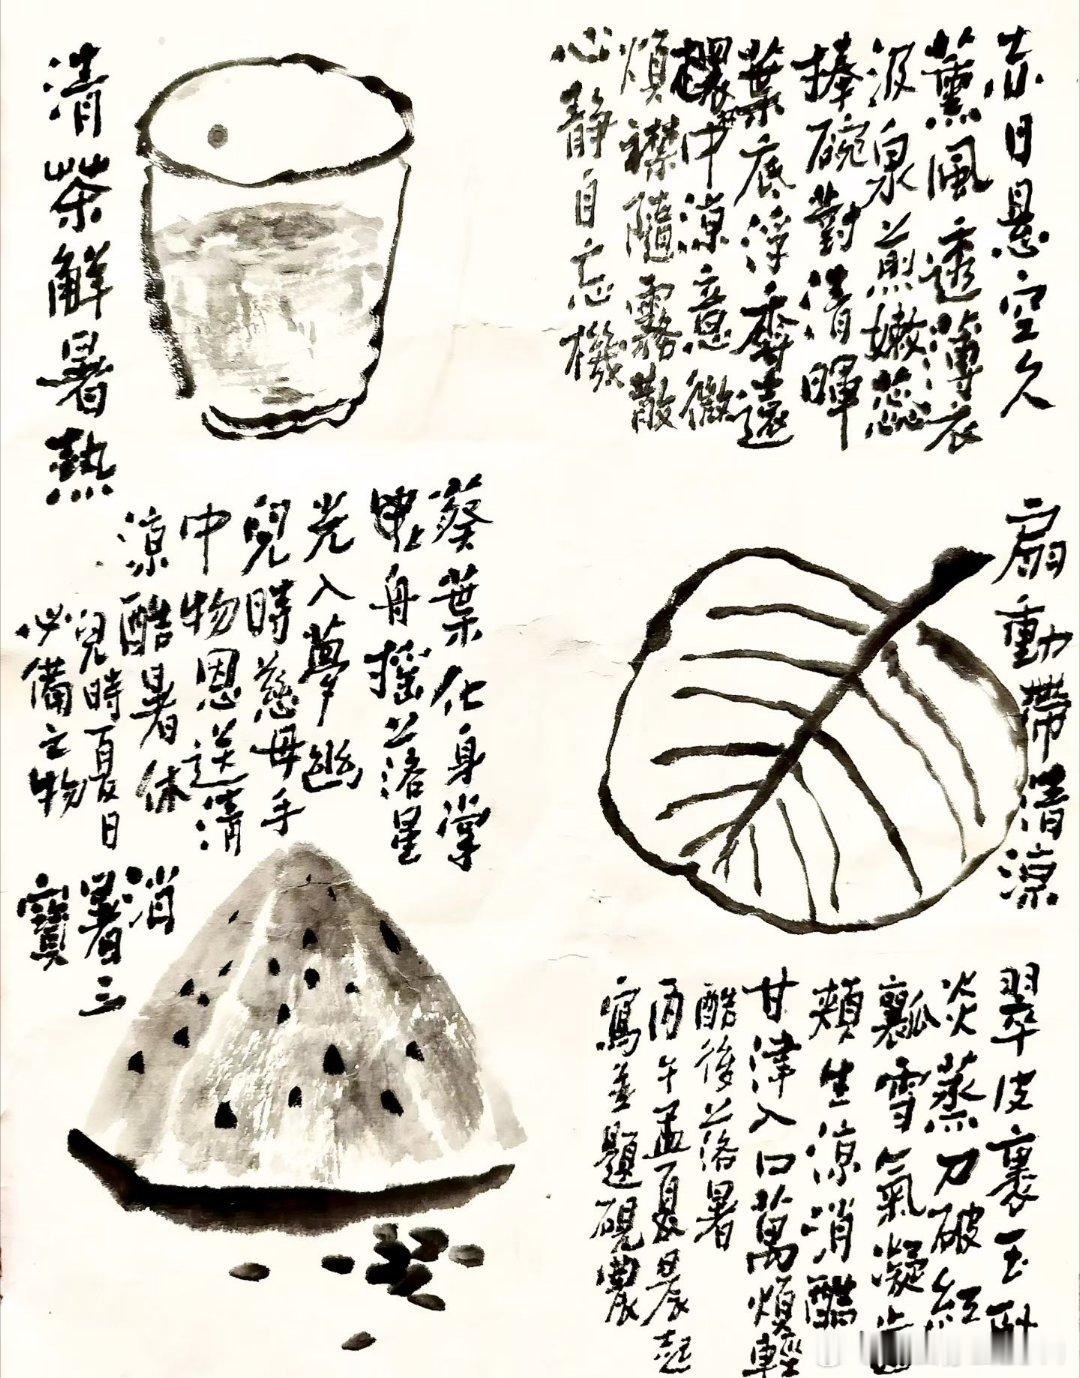 赤日悬空久
薰風透薄衣
汲泉煎嫩蕊
捧碗對清暉
葉底浮香遠
中涼意微
煩襟隨霧散
心静自忘機
清茶解暑熱
扇動帶清涼
葵葉化身掌
舟摇落星
光入夢幽
兒時慈母手
中物恩送清
涼酷暑休
兒時夏日
必備之物
消
暑三
寶
翠皮裹玉卧
炎蒸刀破紅
瓤雪氣凝
頰生涼消酷
甘津入口萬煩輕
酷後落暑
丙午孟夏晨起
寫並題硯農